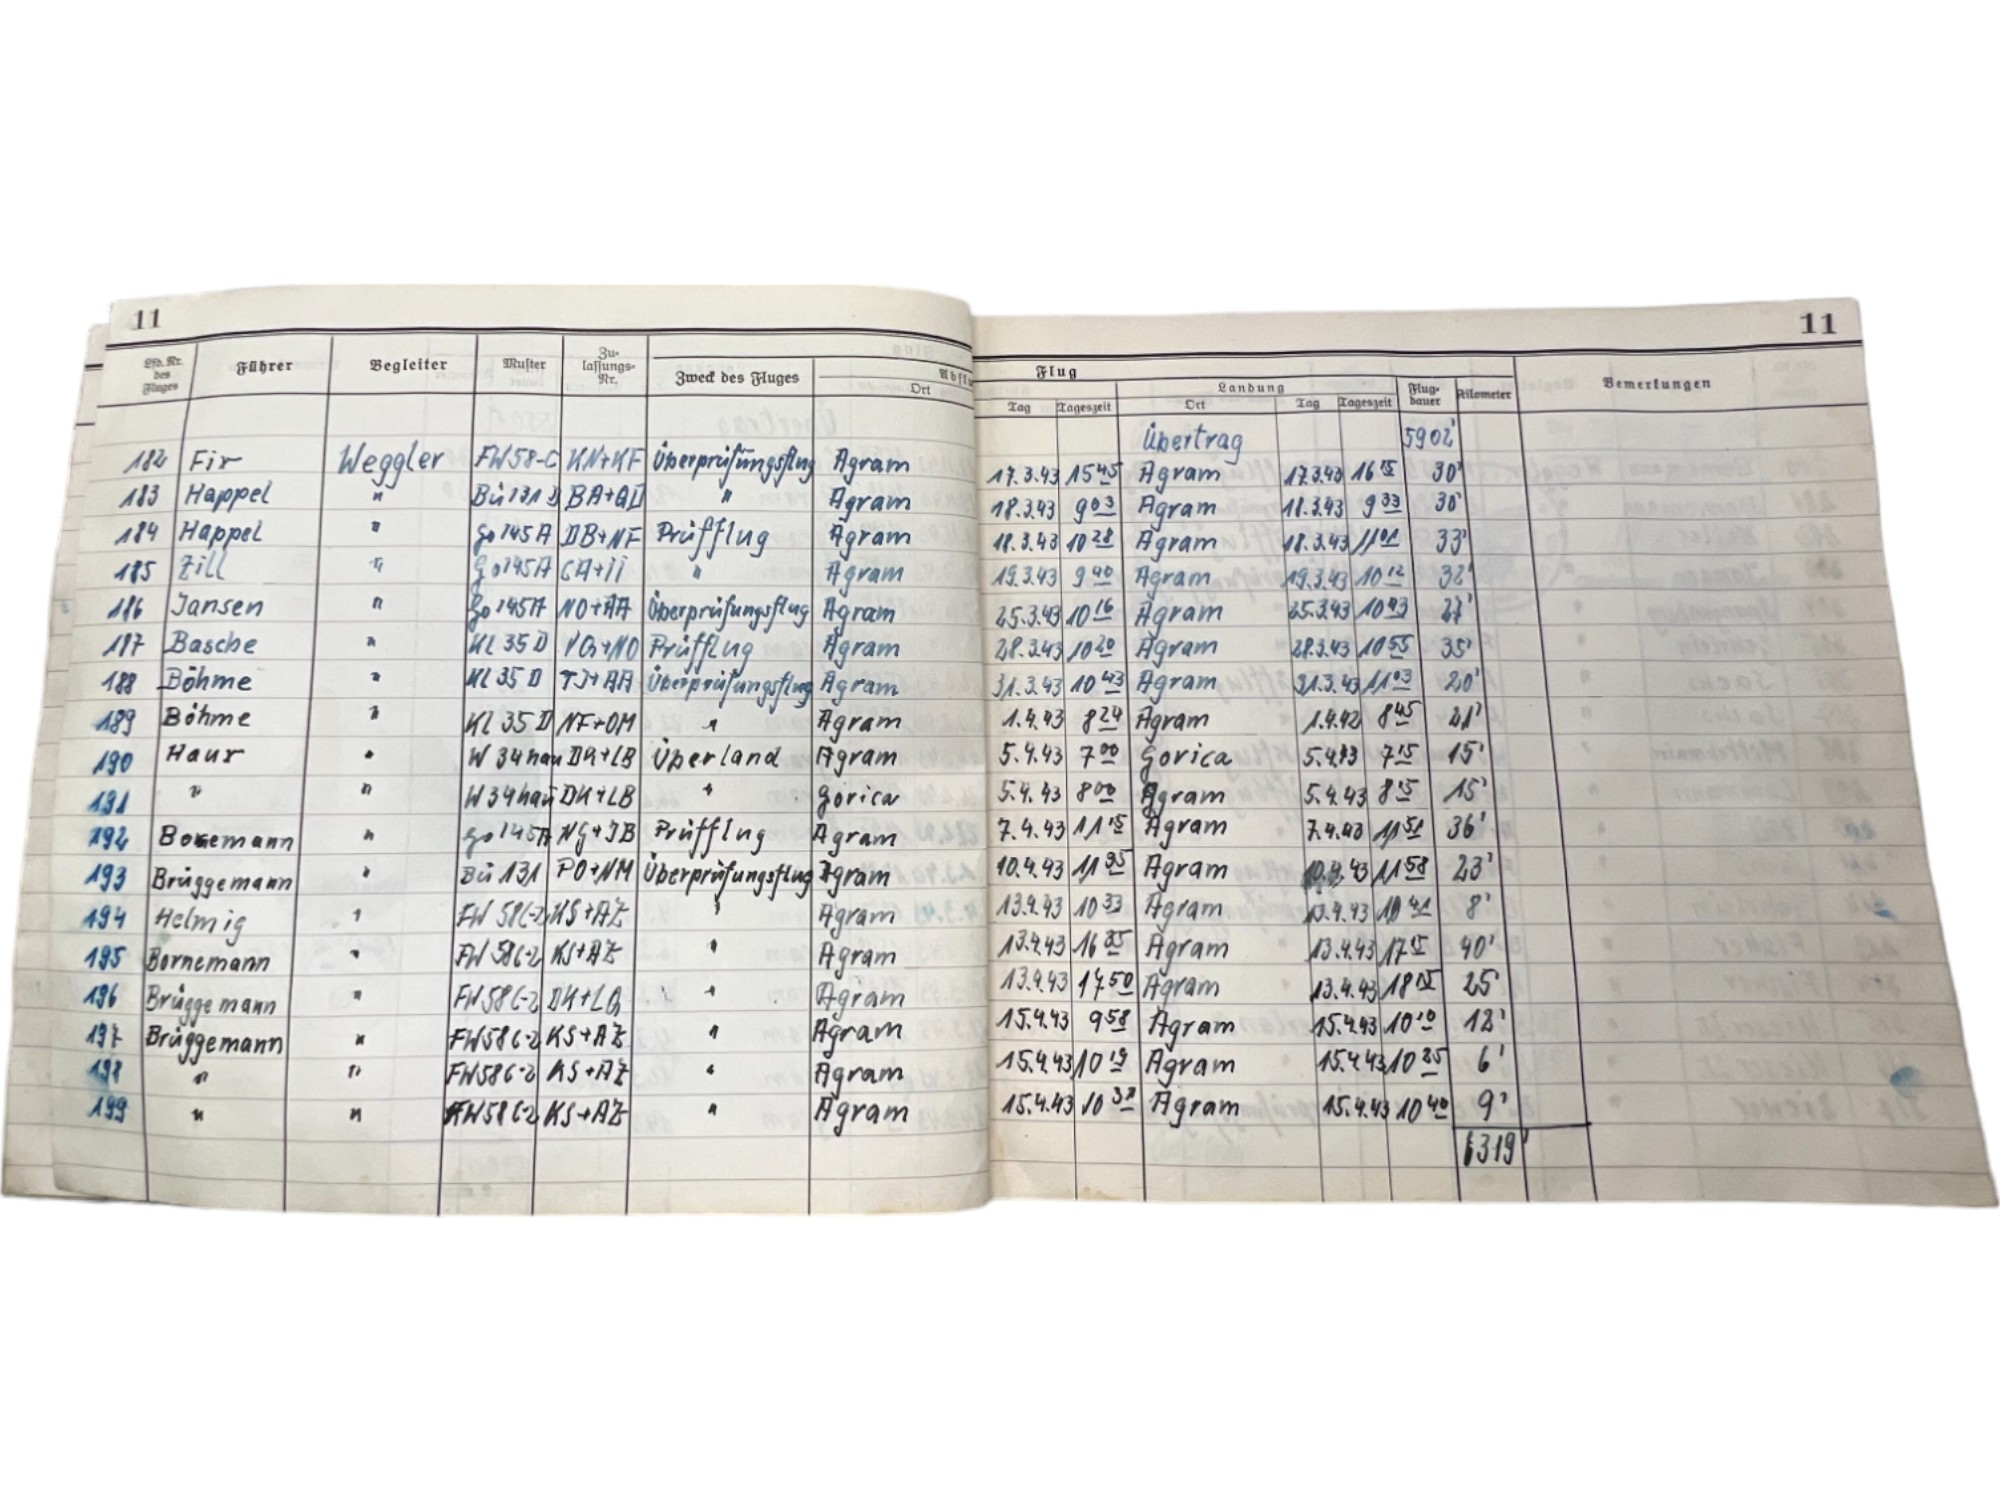 11 11
Lfd. Nr. des Fluges Führer Begleiter Muster Zulassungs-Nr. Zweck des Fluges Abflu Flug Bemerkungen
Ort Tag Tageszeit Landung Ort Tag Tageszeit Flugdauer Kilometer
Übertrag 5902'
182 Fix Weggler FW58-C KN+KF Überprüfungsflug Agram 17.3.43 15 45 Agram 17.3.43 16 15 30'
183 Happel " Bü131D BA+QD " Agram 18.3.43 9 03 Agram 18.3.43 9 33 30'
184 Happel " Go145A DB+NF Prüfflug Agram 18.3.43 10 28 Agram 18.3.43 11 01 33'
185 Zill " Go145A CA+II " Agram 19.3.43 9 40 Agram 19.3.43 10 12 32'
186 Jansen " Go145A NO+AA Überprüfungsflug Agram 25.3.43 10 16 Agram 25.3.43 10 43 27'
187 Basche " KL 35 D Prüfflug Agram 28.3.43 10 20 Agram 28.3.43 10 55 35'
188 Böhme " KL 35 D TJ+AA Überprüfungsflug Agram 31.3.43 10 43 Agram 31.3.43 11 03 20'
189 Böhme " KL 35 D NF+OM " Agram 1.4.43 8 24 Agram 1.4.42 8 45 21'
190 Haur " W 34 hau DK+LB Überland Agram 5.4.43 7 00 Gorica 5.4.43 7 15 15'
191 " " W 34 hau DK+LB " Gorica 5.4.43 8 00 Agram 5.4.43 8 15 15'
192 Bornemann " Go145A NG+JB Prüfflug Agram 7.4.43 11 15 Agram 7.4.43 11 51 36'
193 Brüggemann " Bü 131 PO+NM Überprüfungsflug Agram 10.4.43 11 35 Agram 10.4.43 11 58 23'
194 Helmig " FW 58C-2 KS+AZ " Agram 13.4.43 10 33 Agram 13.4.43 10 41 8'
195 Bornemann " FW 58C-2 KS+AZ " Agram 13.4.43 16 35 Agram 13.4.43 17 15 40'
196 Brüggemann " FW 58C-2 " Agram 13.4.43 17 50 Agram 13.4.43 18 15 25'
197 Brüggemann " FW58C-2 KS+AZ " Agram 15.4.43 9 58 Agram 15.4.43 10 10 12'
198 " " FW58C-2 KS+AZ " Agram 15.4.43 10 19 Agram 15.4.43 10 25 6'
199 " " FW58C-2 KS+AZ " Agram 15.4.43 10 31 Agram 15.4.43 10 40 9'
6319'